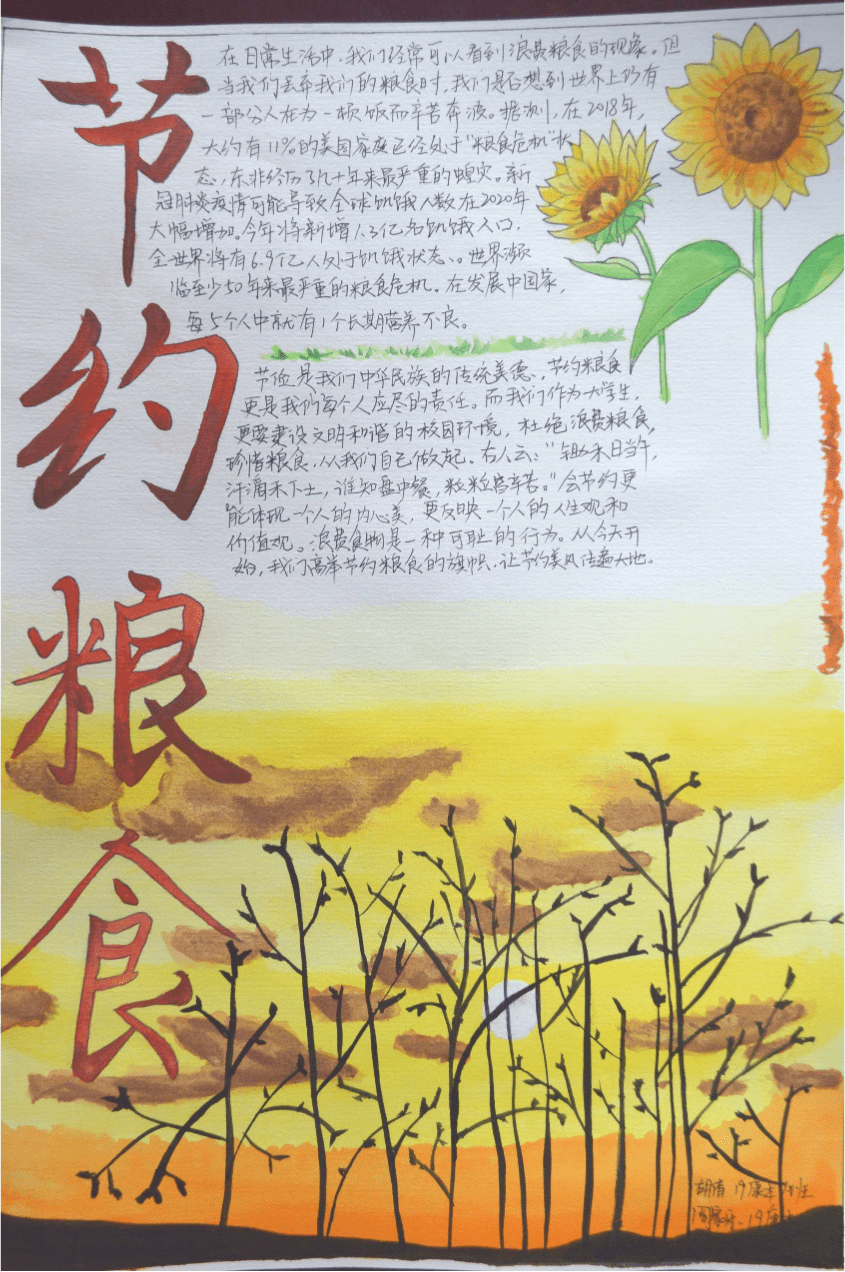 节约粮食
在日常生活中,我们经常可以看到浪费粮食的现象。但
当我们丢弃我们的粮食时,我们是否想到世界上仍有
一部分人在为一顿饭而辛苦奔波。据测,在2018年,
大约有11%的美国家庭已经处于"粮食危机"状
态,东非经历了几十年来最严重的蝗灾。新
冠肺炎疫情可能导致全球饥饿人数在2020年
大幅增加。今年将新增1.3亿名饥饿人口,
全世界将有6.9亿人处于饥饿状态。世界濒
临至少50年来最严重的粮食危机。在发展中国家,
每5个人中就有1个长期营养不良。
节俭是我们中华民族的传统美德,节约粮食
更是我们每个人应尽的责任。而我们作为大学生,
更要建设文明和谐的校园环境,杜绝浪费粮食,
珍惜粮食,从我们自己做起。古人云:"锄禾日当午,
汗滴禾下土,谁知盘中餐,粒粒皆辛苦。"会节约更
能体现一个人的内心美,更反映一个人的人生观和
价值观。浪费食物是一种可耻的行为。从今天开
始,我们高举节约粮食的旗帜,让节约美风传遍大地。
19康
19